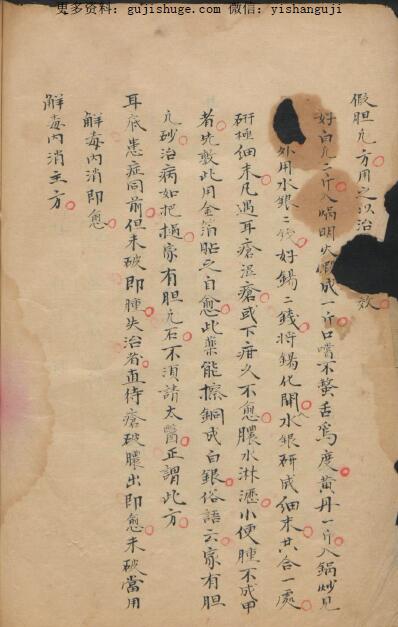 更多资料：gujishuge.com 微信：yishanguji
假胆凡方用之以治 效
好白凡二斤入鍋明火煆成一斤口嚐不螫舌爲度黄丹一斤入鍋炒見
外用水銀二錢好錫二錢将錫化開水銀研成細末共合一處
研極細末凡遇耳瘡湿瘡或下疳久不愈膿水淋瀝小便腫不成甲
者先敷此用金箔貼之自愈此藥能擦銅成白銀俗語云家有胆
凡砂治病如把 家有胆凡石不湏請太醫正謂此方
耳底患症同前但未破即腫失治者直待瘡破膿出即愈未破當用
解毒内消即愈
解毒内消主方